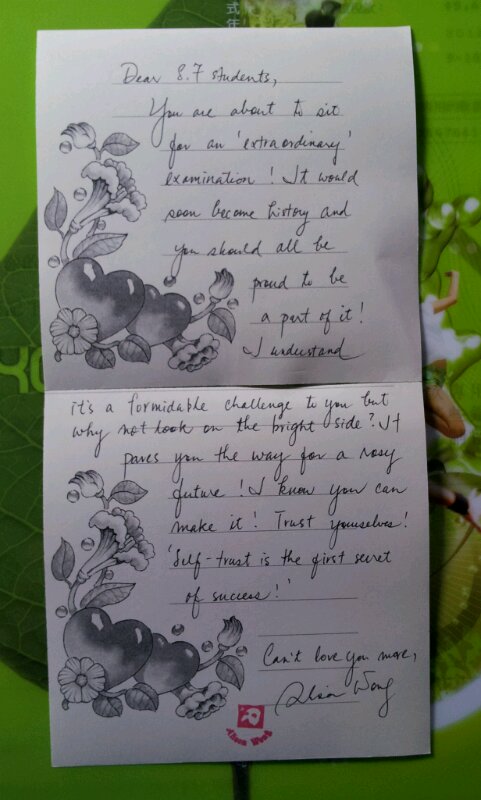 Dear 8.7 students,
You are about to sit
for an 'extraordinary'
examination! It would
soon become history and
you should all be
proud to be
a part of it!
I understand
it's a formidable challenge to you but
why not look on the bright side? It
paves you the way for a rosy
future! I know you can
make it! Trust yourselves!
'Self-trust is the first secret
of success!'
Can't love you more,
Wong